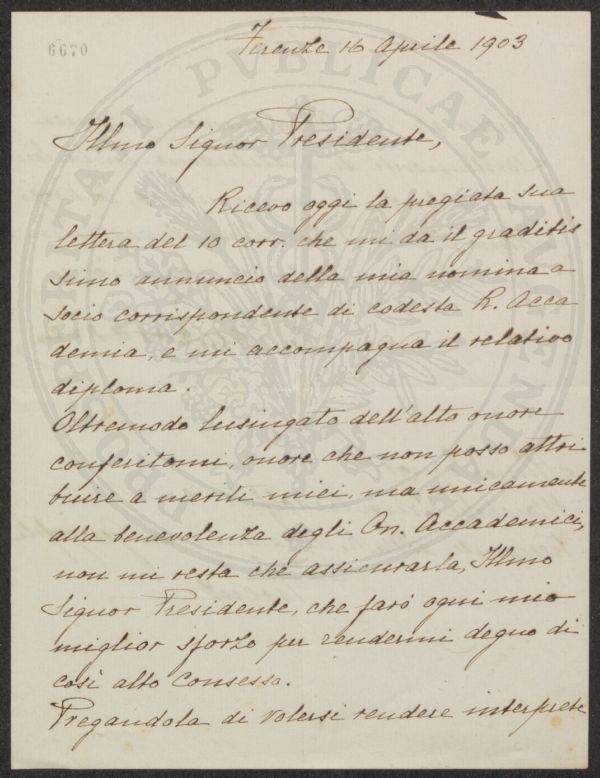 6670
Firenze 16 Aprile 1903
Illmo Signor Presidente,
Ricevo oggi la pregiata sua
lettera del 10 corr. che mi da il graditis
simo annuncio della mia nomina a
socio corrispondente di codesta R. Acca
demia, e mi accompagna il relativo
diploma.
Oltremodo lusingato dell'alto onore
conferitomi, onore che non posso attri
buire a meriti miei, ma unicamente
alla benevolenza degli On. Accademici,
non mi resta che assicurarla, Illmo
Signor Presidente, che farò ogni mio
miglior sforzo per rendermi degno di
così alto Consesso.
Pregandola di volersi rendere interprete
PROSPERITATI PVBLICAE AVGENDAE